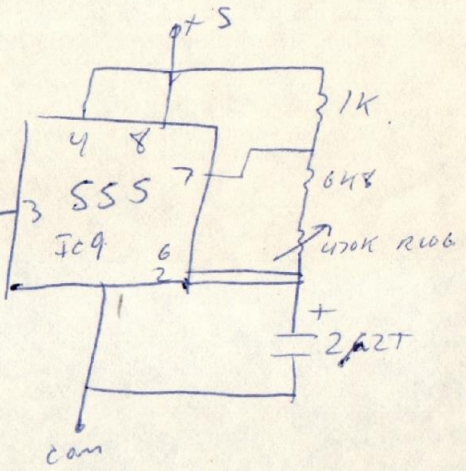 + 5
1K
4 8
7
555
6K8
3
Ic9
6
2
470K
+
1
2µ2T
com